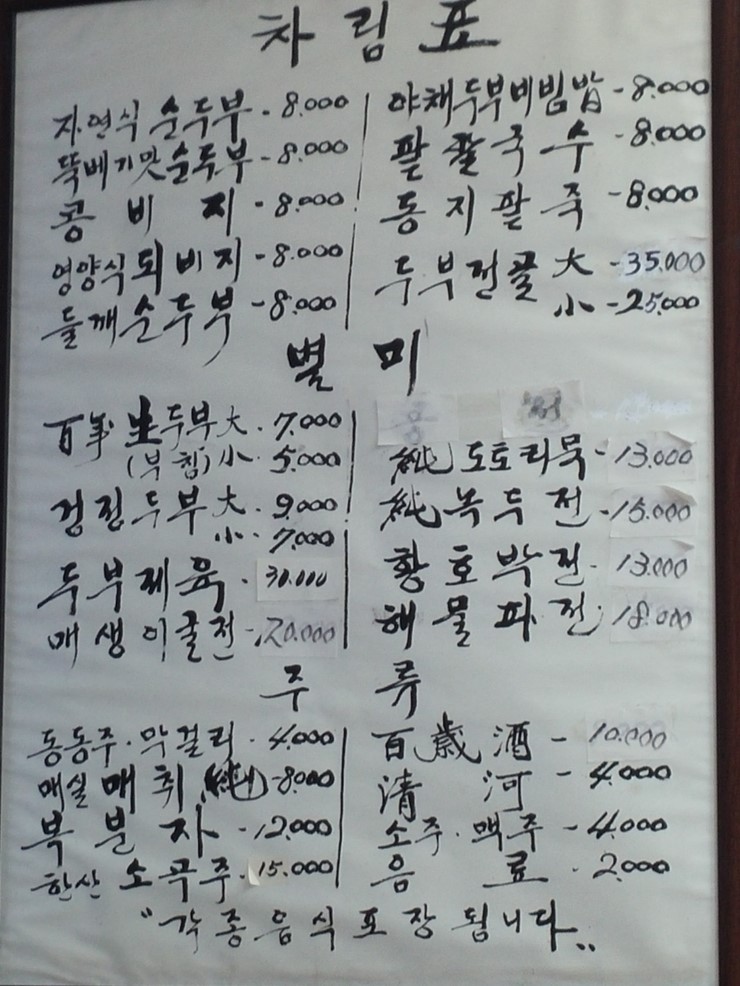 차림표
자연식 순두부 - 8.000
뚝배기맛 순두부 - 8.000
콩비지 - 8.000
영양식 되비지 - 8.000
들깨순두부 - 8.000
야채두부비빔밥 - 8.000
팥칼국수 - 8.000
동지팥죽 - 8.000
두부전골 大 - 35.000
小 - 25.000
별미
百年 生두부 大 - 7.000
(부침) 小 - 5.000
검정두부 大 - 9.000
小 - 7.000
두부제육 - 30.000
매생이굴전 - 20.000
純 도토리묵 - 13.000
純 녹두전 - 15.000
황호박전 - 13.000
해물파전 - 18.000
주류
동동주·막걸리 - 4.000
매실 매취純 - 8.000
복분자 - 12.000
한산 소곡주 - 15.000
百歲酒 - 10.000
清河 - 4.000
소주·맥주 - 4.000
음료 - 2.000
"각종음식포장됩니다"